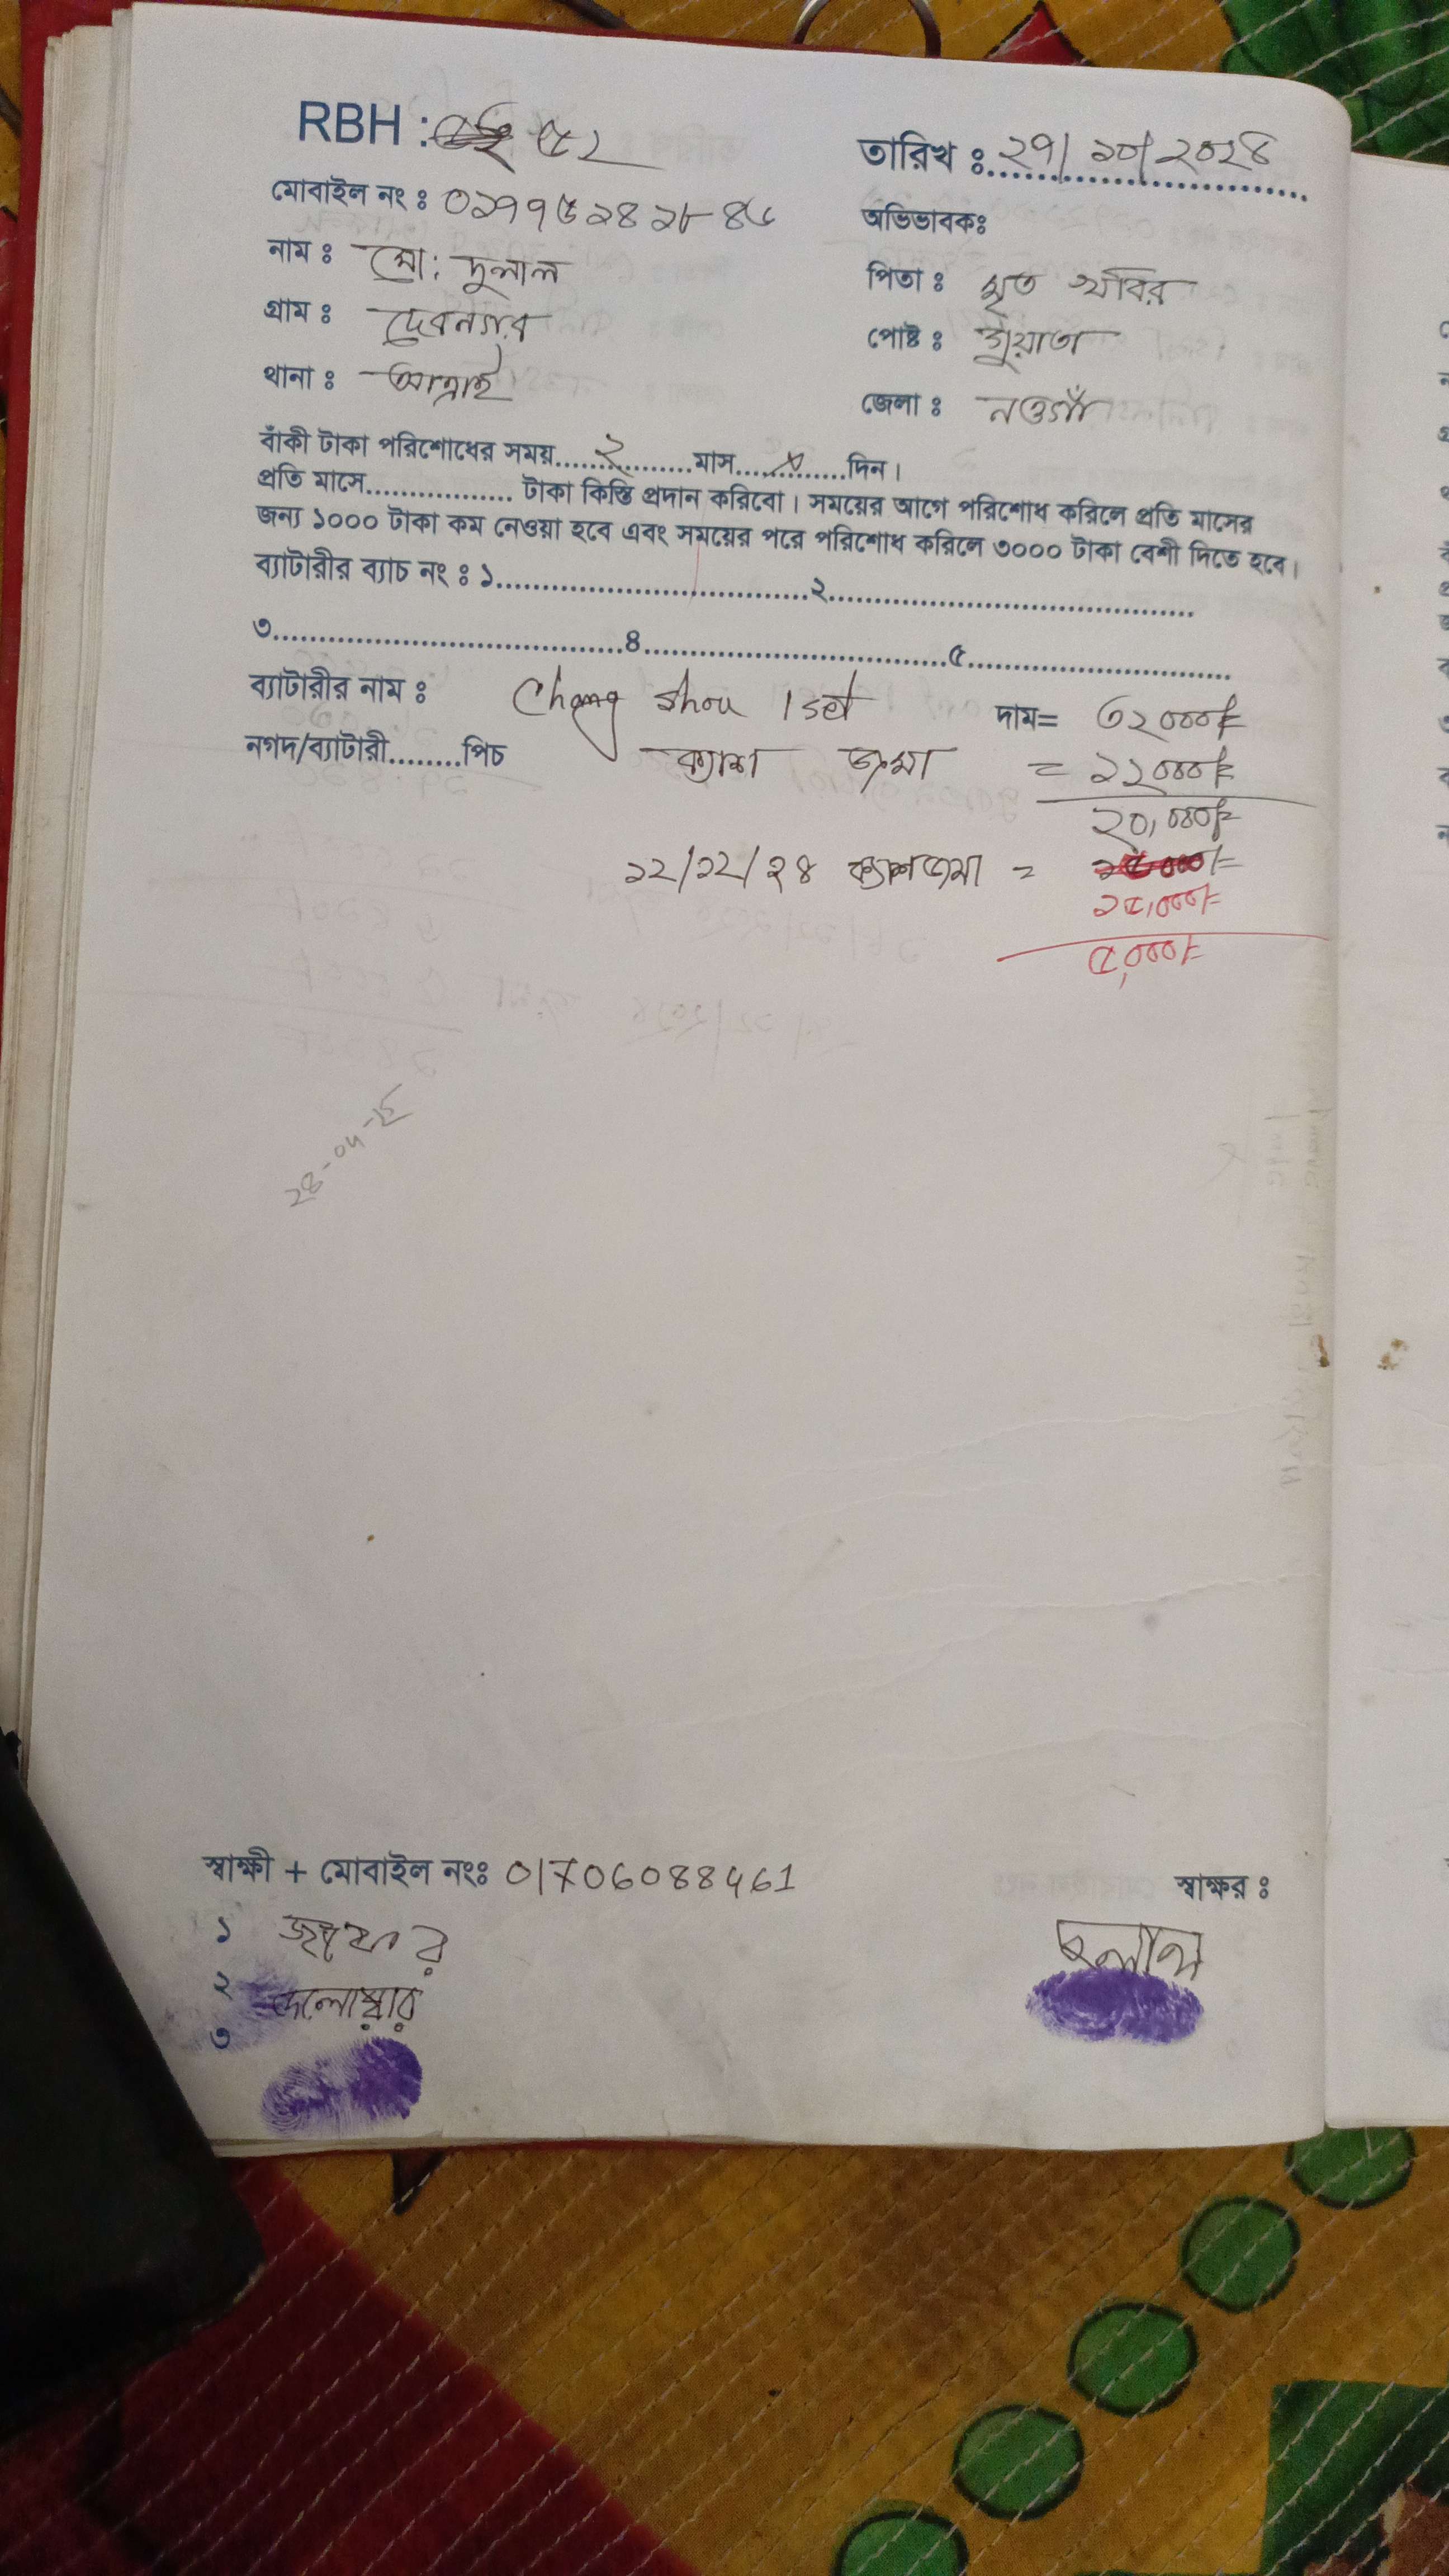 RBH : ৫২
তারিখ ঃ ২৭/১০/২০২৪
মোবাইল নং ঃ
অভিভাবকঃ
নাম ঃ মো: দুলাল
পিতা ঃ মৃত খবির
গ্রাম ঃ দেবনগর
পোষ্ট ঃ
থানা ঃ আত্রাই
জেলা ঃ নওগাঁ
বাঁকী টাকা পরিশোধের সময়......২......মাস......x......দিন।
প্রতি মাসে................. টাকা কিস্তি প্রদান করিবো। সময়ের আগে পরিশোধ করিলে প্রতি মাসের
জন্য ১০০০ টাকা কম নেওয়া হবে এবং সময়ের পরে পরিশোধ করিলে ৩০০০ টাকা বেশী দিতে হবে।
ব্যাটারীর ব্যাচ নং ঃ ১........................................২...........................................
৩..........................................৪....................................৫...............................
ব্যাটারীর নাম ঃ Chang Shou 1 set দাম= ৩২০০০/=
নগদ/ব্যাটারী.........পিচ ক্যাশ জমা = ১২০০০/=
২০,০০০/=
১২/১২/২৪ ক্যাশ জমা =
১৫,০০০/=
৫,০০০/=
স্বাক্ষী + মোবাইল নংঃ 01706088461
স্বাক্ষর ঃ
১
দুলাল
২ দেলোয়ার
৩